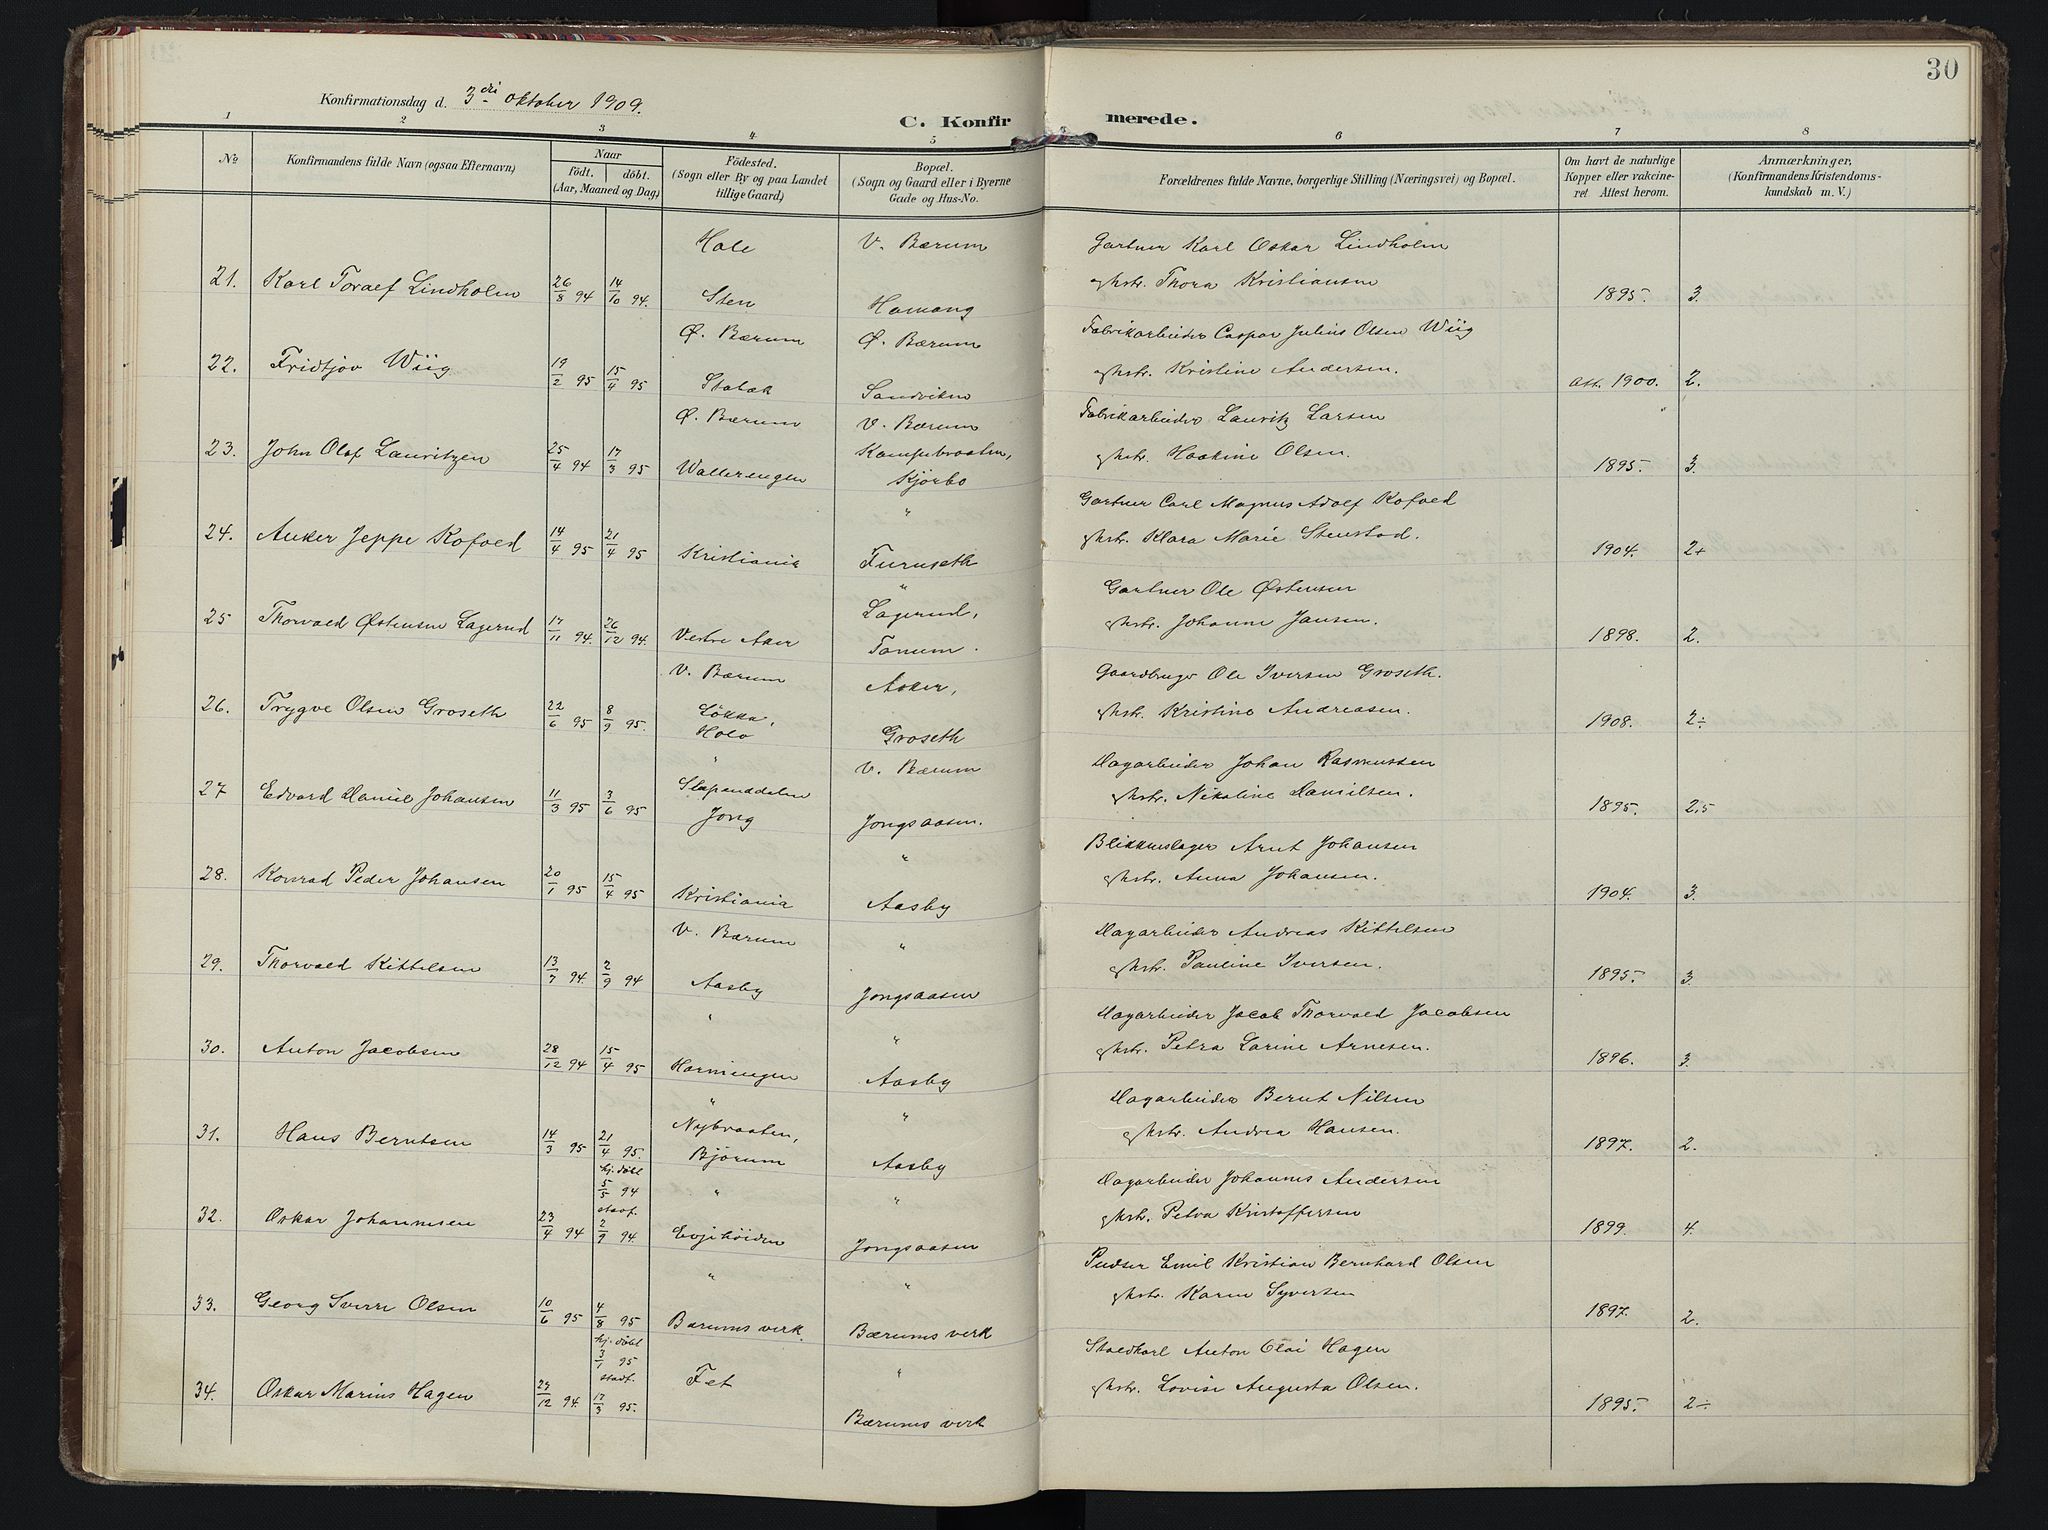 30
Konfirmationsdag d. 3die oktober 1909.
C. Konfirmerede.
1 2 3 4 5 6 7 8
No
Konfirmandens fulde Navn (ogsaa Efternavn)
Naar
födt. döbt.
(Aar, Maaned og Dag)
Födested.
(Sogn eller By og paa Landet
tillige Gaard)
Bopæl.
(Sogn og Gaard eller i Byerne
Gade og Hus-No.
Forældrenes fulde Navne, borgerlige Stilling (Næringsvei) og Bopæl.
Om havt de naturlige
Kopper eller vakcine-
ret Attest herom.
Anmærkninger,
(Konfirmandens Kristendoms-
kundskab m. V.)
Hole V. Bærum Gartner Karl Oskar Lindholm
21. Karl Toralf Lindholm 26/8 94 14/10 94. Sten Hamang ghstr. Thora Kristiansen 1895. 3.
Ø. Bærum Ø. Bærum Fabrikarbeider Caspar Julius Olsen Wiig
22. Fridtjov Wiig 19/2 95 15/4 95 Stabæk Sandviken ghstr. Kristine Andersen. Att. 1900. 2.
Ø. Bærum V. Bærum Fabrikarbeider Lauritz Larsen
23. John Olaf Lauritzen 25/4 94 17/3 95 Wallerengen Kampebraaten, Kjörbo ghstr. Haakine Olsen. 1895. 3.
" Gartner Carl Magnus Adolf Kofoed
24. Anker Jeppe Kofoed 14/4 95 21/4 95 Kristiania Furuseth ghstr. Klara Marie Stenstad. 1904. 2+
" Gartner Ole Østensen
25 Thorvald Østensen Lagerud 17/11 94. 26/12 94. Vestre Aker Lagerud, Tanum. ghstr. Johanne Jansen. 1898. 2.
V. Bærum Asker, Gaardbruger Ole Iversen Groseth.
26. Trygve Olsen Groseth 22/6 95 8/9 95. Løkka, Holo Groseth ghstr. Kristine Andreasen. 1908. 2÷
" V. Bærum Dagarbeider Johan Rasmussen
27 Edvard Daniel Johansen 11/3 95 3/6 95 Slapenddalen Jong Jongsaasen. ghstr. Nikoline Danielsen. 1895. 2,5
" Blikkenslager Arnt Johansen
28. Konrad Peder Johansen 20/1 95 15/4 95 Kristiania Aasby ghstr. Anna Johansen. 1904. 3.
V. Bærum " Dagarbeider Andreas Kittelsen
29. Thorvald Kittelsen 13/7 94. 2/9 94 Aasby Jongsaasen ghstr. Pauline Iversen. 1895. 3.
" " Dagarbeider Jacob Thorvald Jacobsen
30. Anton Jacobsen 28/12 94 15/4 95 Horningen Aasby ghstr. Petra Larine Arnesen. 1896. 3.
" " Dagarbeider Bernt Nilsen
31. Hans Berntsen 14/3 95 21/4 95. Nybraaten, Bjørum Aasby ghstr. Andrea Hansen. 1897. 2.
hj. döbt 5/5 94 " " Dagarbeider Johannes Andersen
32. Oskar Johannesen 23/4 94 stadf. 2/9 94. Evjehöiden Jongsaasen ghstr. Petra Kristoffersen 1899. 4.
" " Pudser Emil Kristian Bernhard Olsen
33. Georg Sverre Olsen 10/6 95 4/8 95 Bærums verk. Bærums verk ghstr. Karen Syversen 1897. 2.
hj. döbt 3/1 95 " Staldkarl Anton Olai Hagen
34. Oskar Marius Hagen 27/12 94. stadf. 17/3 95. Fet Bærums verk ghstr. Lovise Augusta Olsen. 1895. 2÷